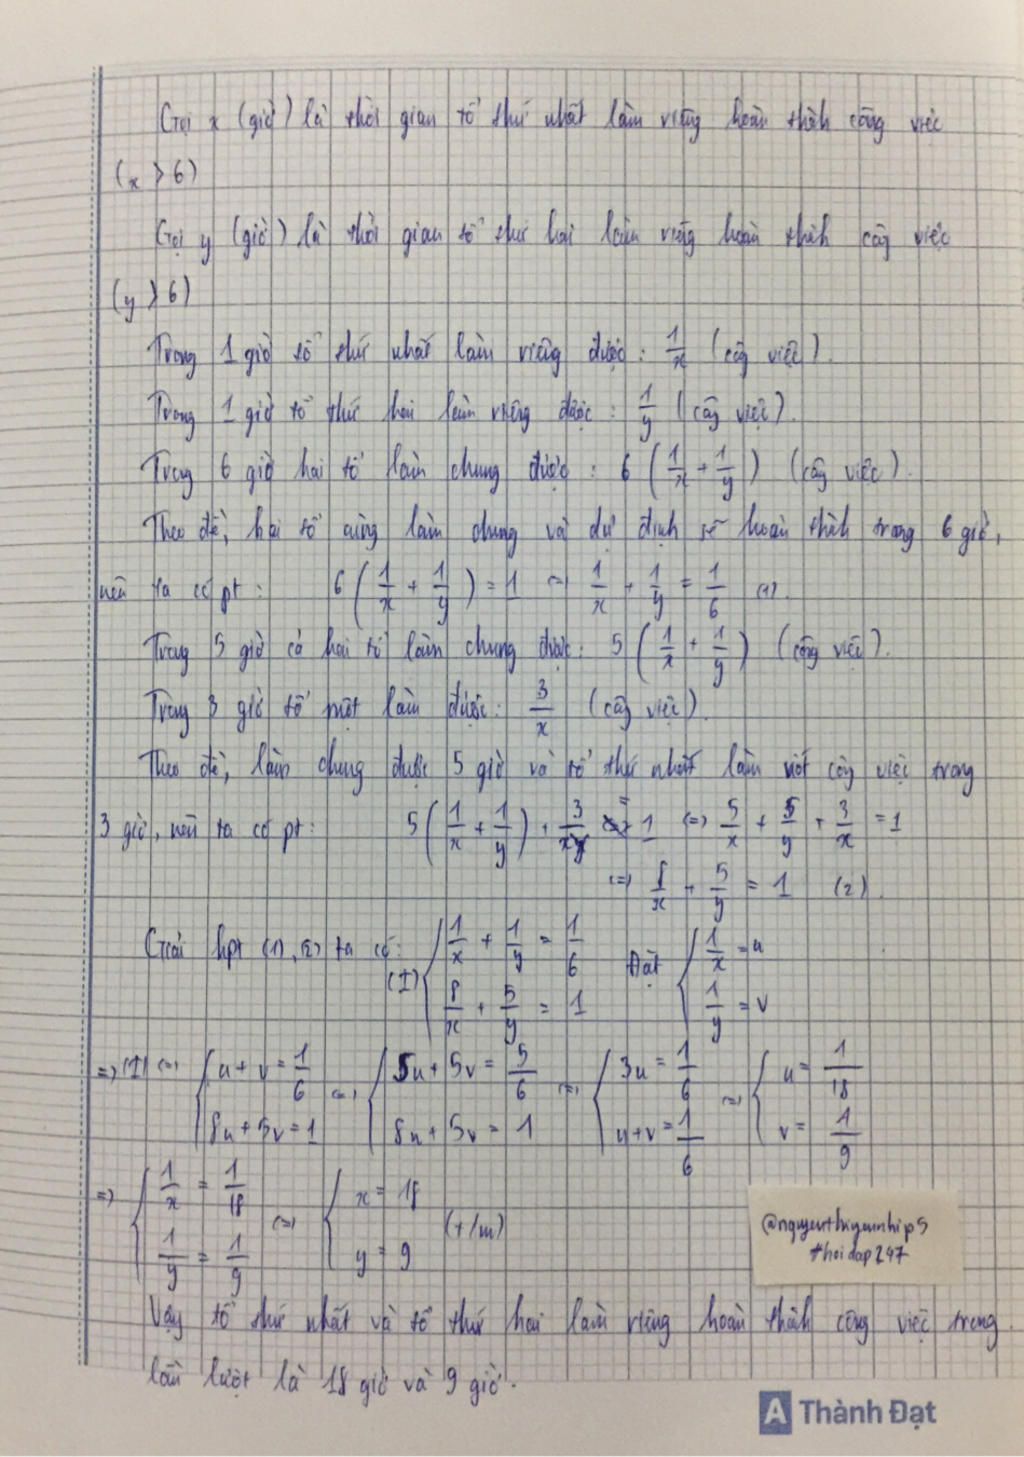 Gọi x (giờ) là thời gian tổ thứ nhất làm riêng hoàn thành công việc
(x > 6)
Gọi y (giờ) là thời gian tổ thứ hai làm riêng hoàn thành công việc
(y > 6)
Trong 1 giờ tổ thứ nhất làm riêng được : 1/x (công việc).
Trong 1 giờ tổ thứ hai làm riêng được : 1/y (công việc).
Trong 6 giờ hai tổ làm chung được : 6 (1/x + 1/y) (công việc).
Theo đề, hai tổ cùng làm chung và dự định sẽ hoàn thành trong 6 giờ,
nên ta có pt : 6 (1/x + 1/y) = 1 <=> 1/x + 1/y = 1/6 (1).
Trong 5 giờ cả hai tổ làm chung được: 5 (1/x + 1/y) (công việc).
Trong 3 giờ tổ một làm được: 3/x (công việc).
Theo đề, làm chung được 5 giờ và tổ thứ nhất làm nốt công việc trong
3 giờ, nên ta có pt: 5 (1/x + 1/y) + 3/x = 1 <=> 5/x + 5/y + 3/x = 1
<=> 8/x + 5/y = 1 (2).
Giải hpt (1), (2) ta có: (I) { 1/x + 1/y = 1/6 Đặt { 1/x = u
8/x + 5/y = 1 1/y = v
=> (I) <=> { u + v = 1/6 <=> { 5u + 5v = 5/6 <=> { 3u = 1/6 <=> { u = 1/18
8u + 5v = 1 8u + 5v = 1 u + v = 1/6 v = 1/9
=> { 1/x = 1/18 <=> { x = 18 (t/m)
1/y = 1/9 y = 9
@nguyenthiyennhip5
#hoidap247
Vậy tổ thứ nhất và tổ thứ hai làm riêng hoàn thành công việc trong
lần lượt là 18 giờ và 9 giờ.
A Thành Đạt